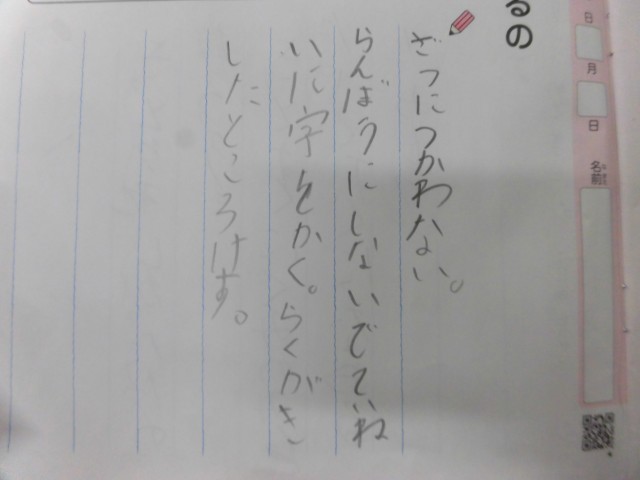 日
月
日
名前
るの
ざつにつかわない。
らんぼうにしないでていね
いに字をかく。らくがき
したところけす。